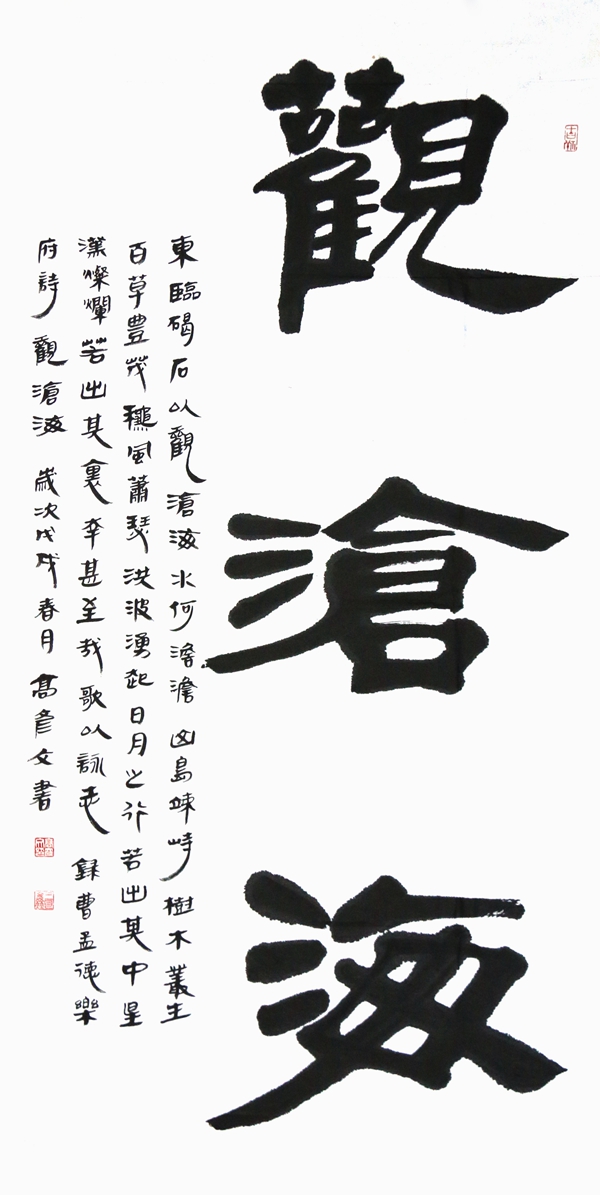 觀滄海
東臨碣石以觀滄海水何澹澹山島竦峙樹木叢生
百草豐茂穐風蕭瑟洪波湧起日月之行若出其中星
漢燦爛若出其裏幸甚至哉歌以詠志 録曹孟德樂
府詩 觀滄海 歲次戊戌春月髙彥文書